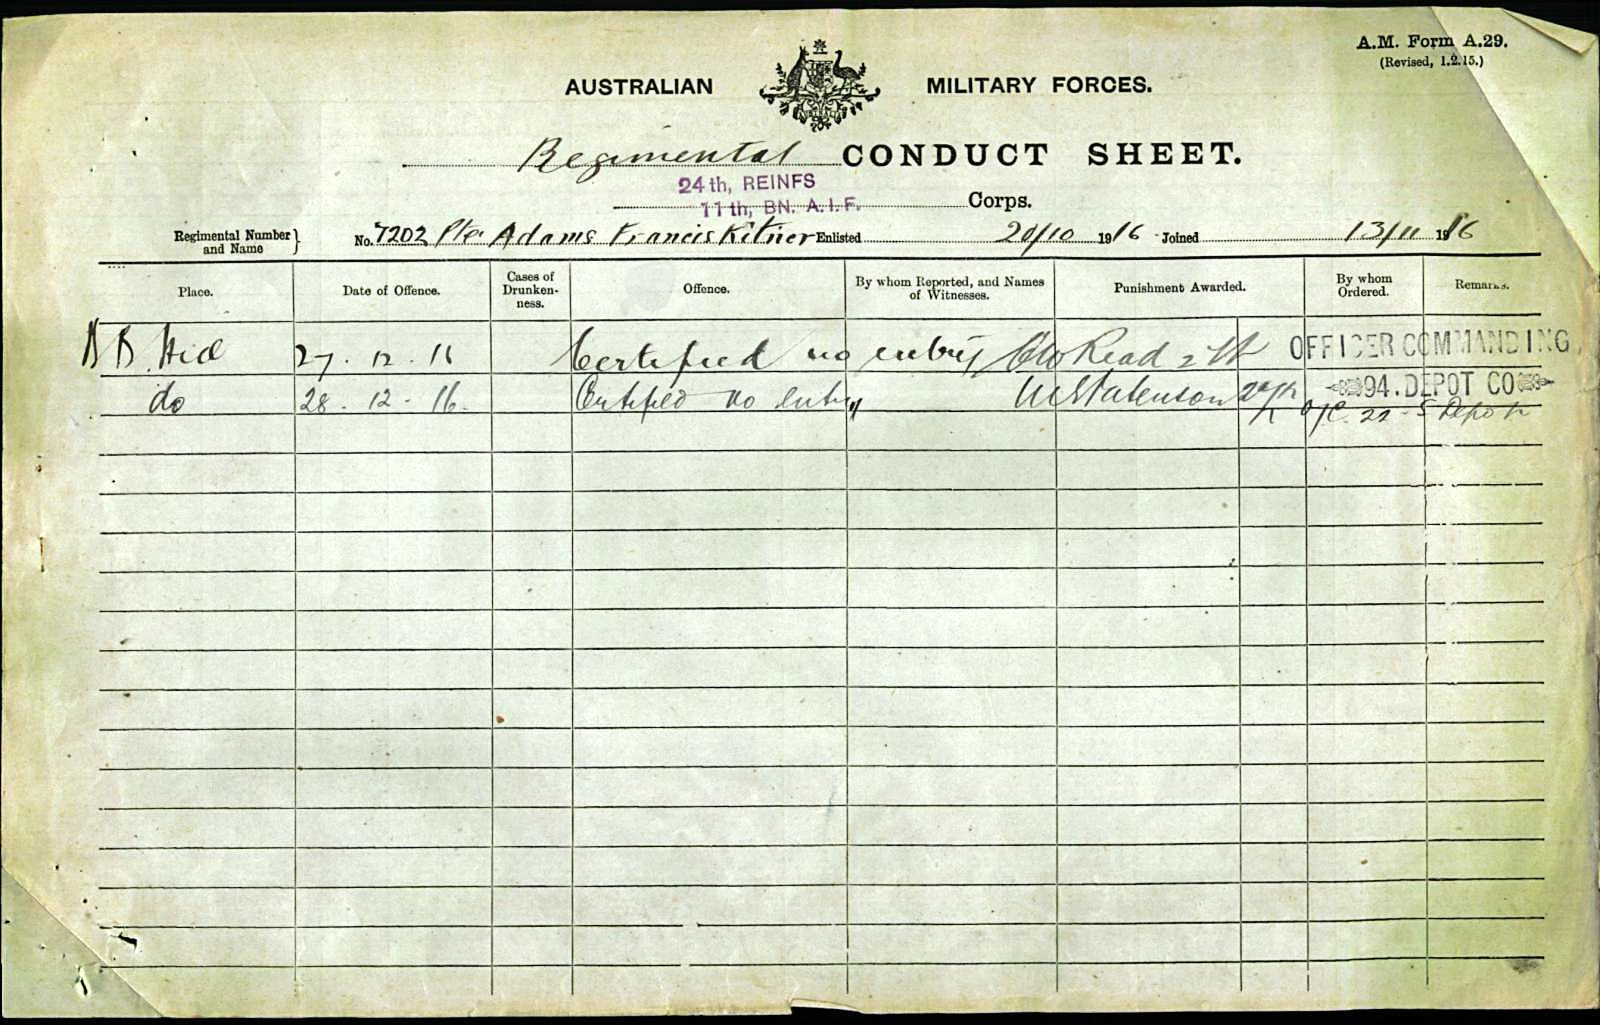 A.M. Form A.29.
(Revised, 1.2.15.)
AUSTRALIAN MILITARY FORCES.
Regimental CONDUCT SHEET.
24th, REINFS
11th, BN. A.I.F. Corps.
Regimental Number and Name } No. 7202 Pte Adams Francis Kitner Enlisted 20/10 1916 Joined 13/11 1916
Place. Date of Offence. Cases of Drunken-ness. Offence. By whom Reported, and Names of Witnesses. Punishment Awarded. By whom Ordered. Remarks.
B B. Hill 27. 12. 16 Certified no entry Read 2 Lt OFFICER COMMANDING
do 28. 12. 16. Certified no entry 94. DEPOT CO
O/C. 22 Depot